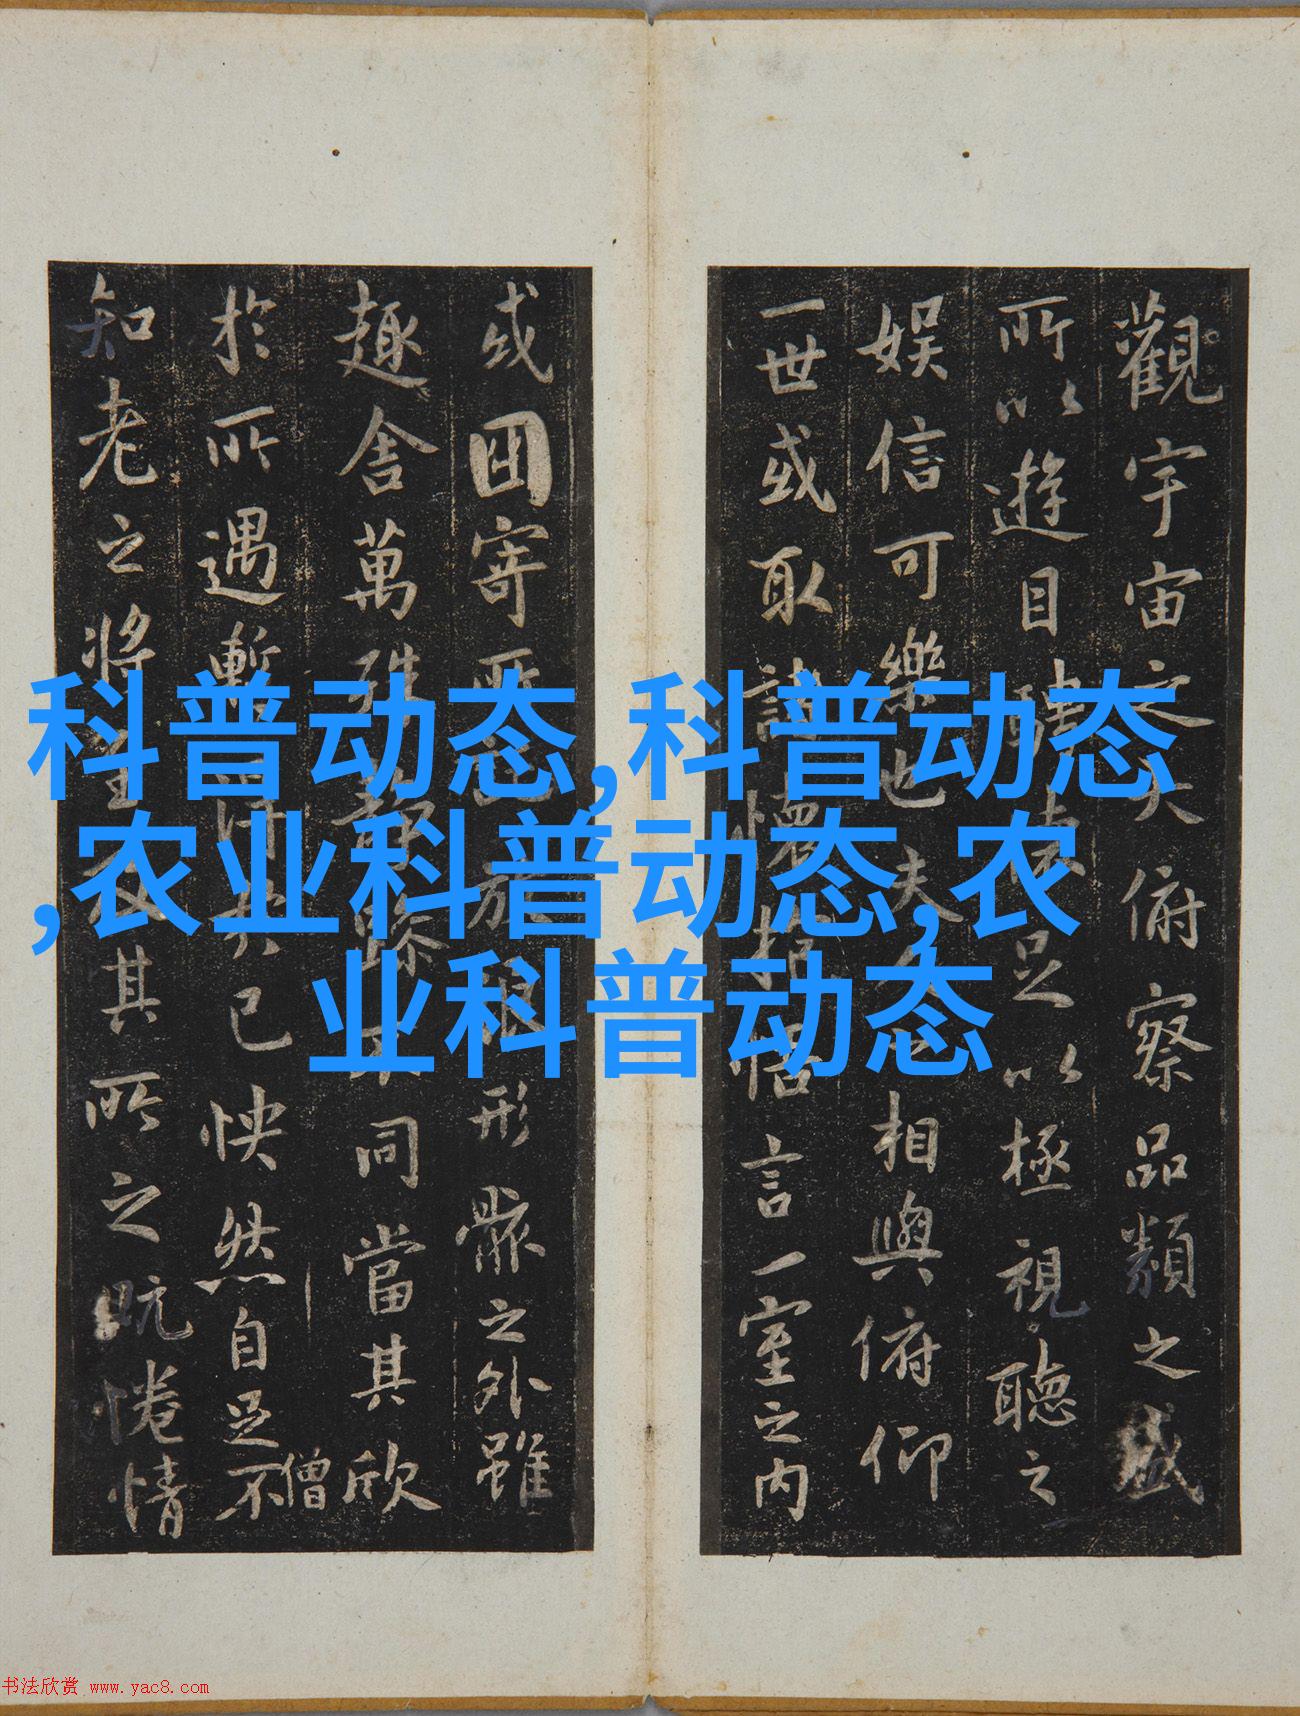 觀宇宙之大俯察品類之盛
所以遊目騁懷足以極視聽之
娛信可樂也夫人之相與俯仰
一世或取諸懷抱悟言一室之内
或因寄所託放浪形骸之外雖
趣舍萬殊靜躁不同當其欣
僧
於所遇暫得於己怏然自足不
知老之將至及其所之既惓情
科普动态,科普动态
,农业科普动态,农
业科普动态
书法欣赏 www.yac8.com